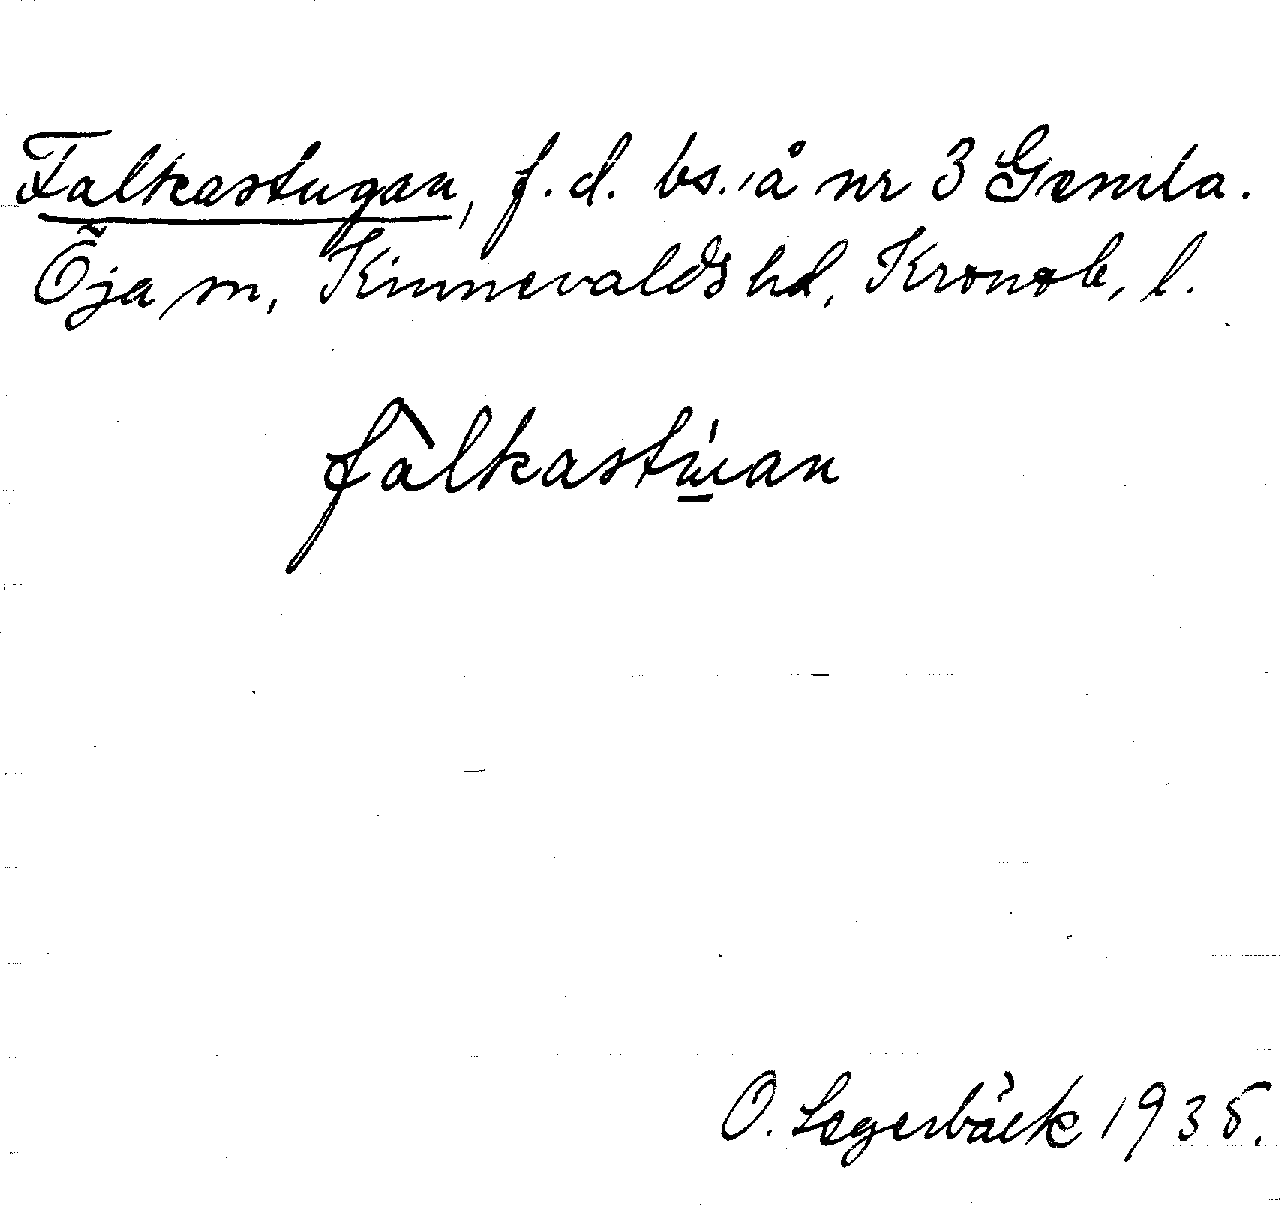 Falkastugan, f. d. bs. å nr 3 Gemla.
Öja sn, Kinnevalds hd, Kronob. l.
fàlkastúan
O. Segerbäck 1935.